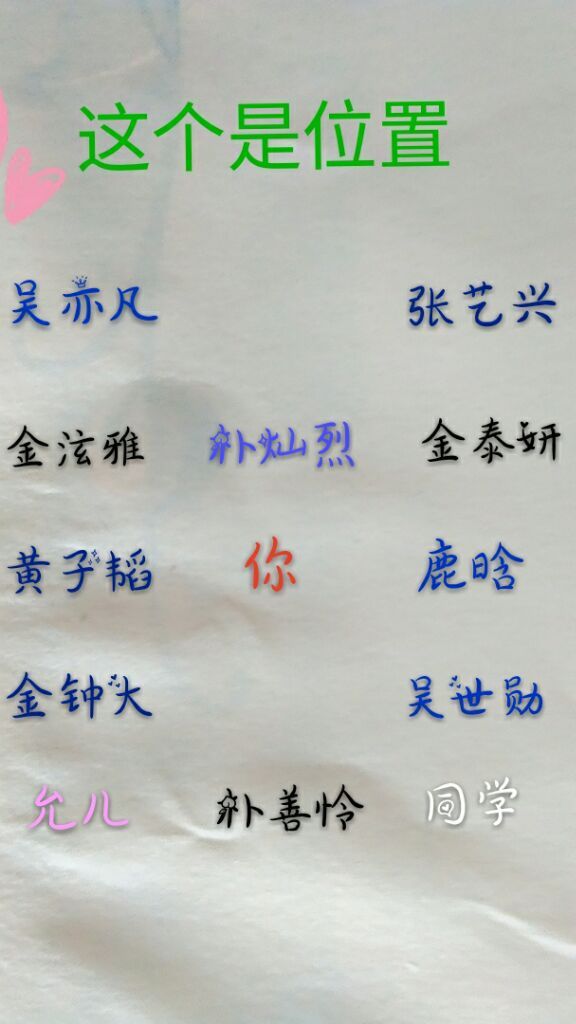 这个是位置
吴亦凡 张艺兴
金泫雅 朴灿烈 金泰妍
黄子韬 你 鹿晗
金钟大 吴世勋
允儿 朴善怜 同学